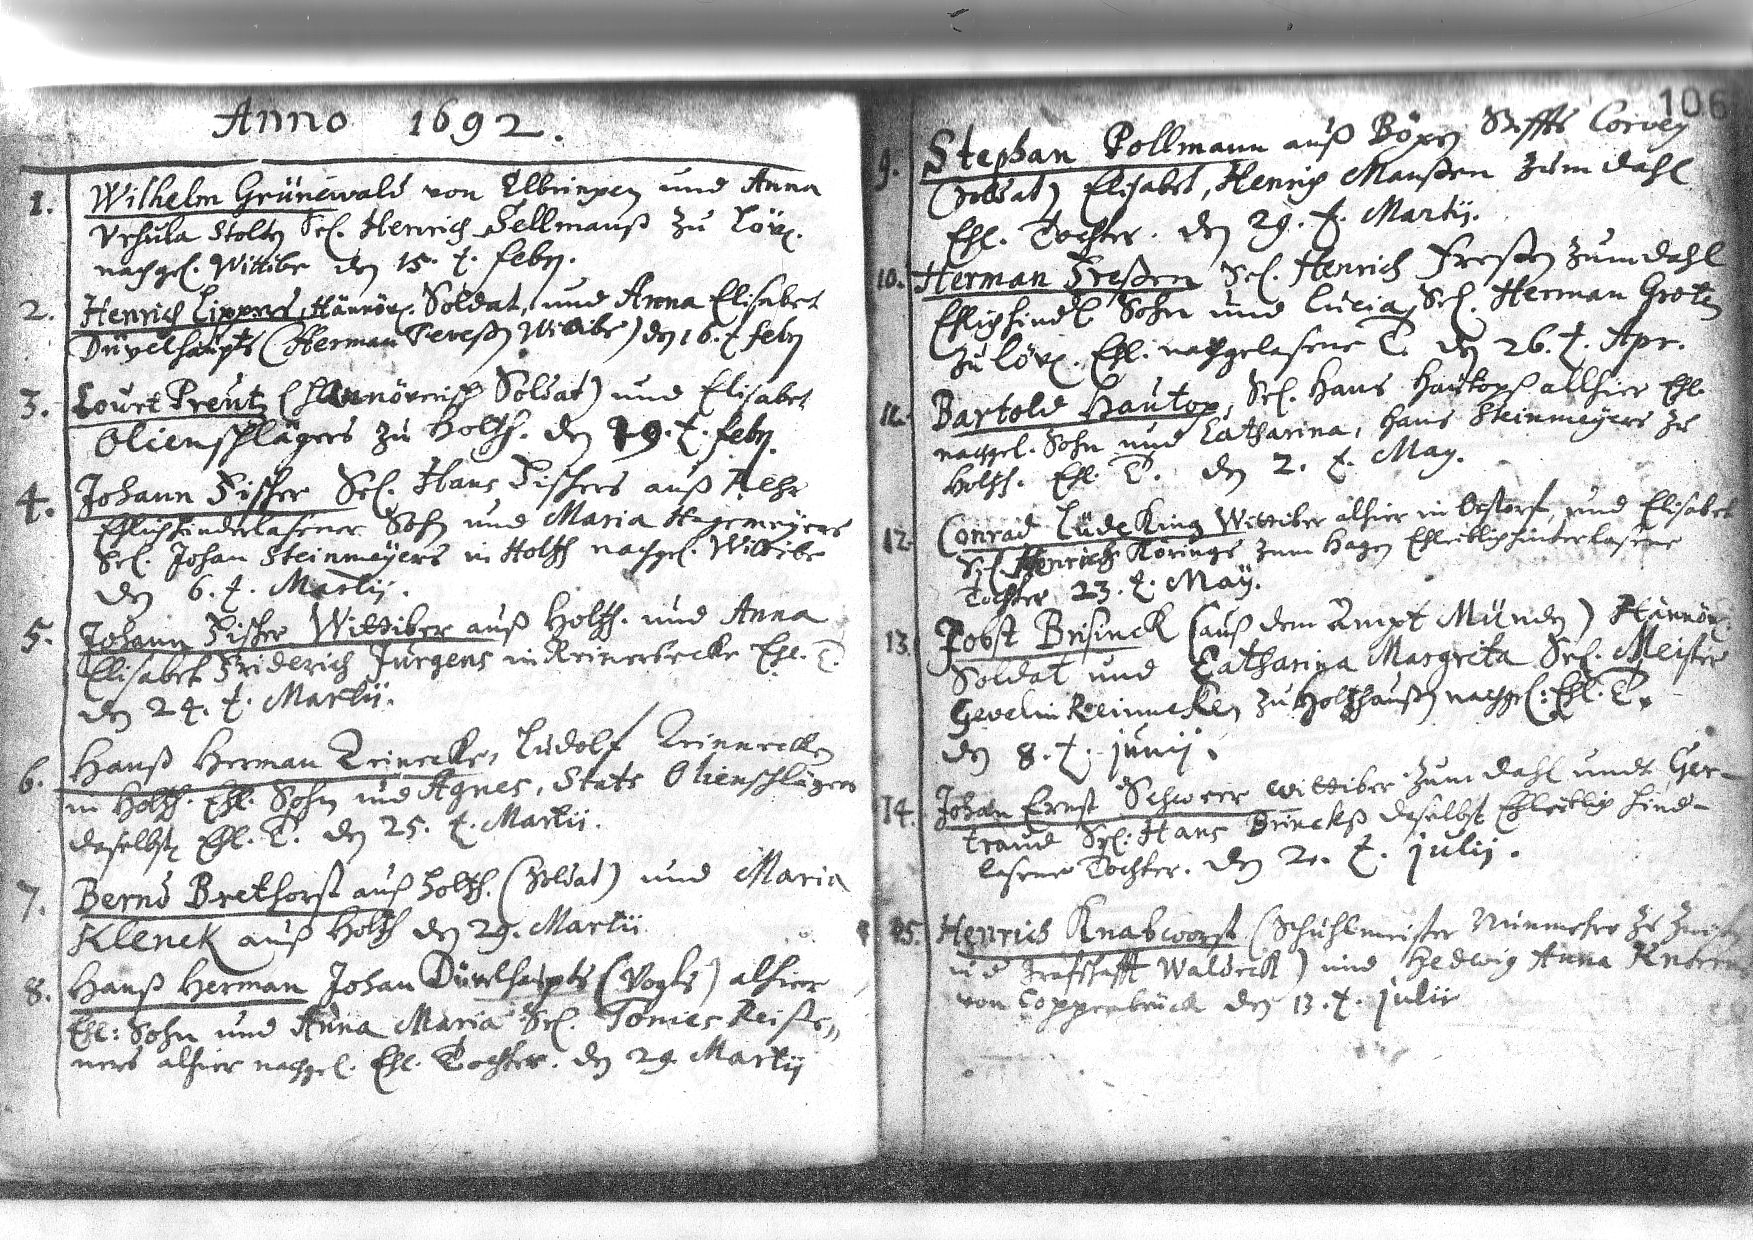 Anno 1692.
1. Wilhelm Grünewald von Elbrinxen und Anna
Vrsula Stolten Sel. Henrich Fellmanß zu Löw.
nachgel. Wittibe den 15. t. Febr.
2. Henrich Lippers, Hannöv. Soldat, und Anna Elisabet
Düvelhaupts (Herman Wittibe) den 16. t. Febr
3. Court Preutz (Hannöverisch Soldat) und Elisabet
Olienschlägers zu Holtzh. den 19. t. Febr.
4. Johann Fischer Sel. Hans Fischers auß
Ehlich hinderlasener Sohn und Maria Hagemeyers
Sel. Johan Steinmeyers in Holtzh nachgel. Wittibe
den 6. t. Martij.
5. Johann Fischer Wittiber auß Holtzh. und Anna
Elisabet Friderich Jurgens in Reinerbecke Ehl. T.
den 24. t. Martij.
6. Hanß Herman Ludolf
in Holtzh. Ehl. Sohn und Agnes, Stats Olienschlägers
daselbst Ehl. T. den 25. t. Martij.
7. Bernd Brethorst auß Holtzh. (Soldat) und Maria
Klenck auß Holtzh den 29. Martii
8. Hanß Herman Johan Düvelhaupts (Vogts) alhier
Ehl: Sohn und Anna Maria Sel. Tönies Reiße,,
ners alhier nachgel. Ehl. Tochter. den 29 Martij
106
9. Stephan Pollmann auß Böxen Stiffts Corvey
(Soldat) Elisabet, Henrich Manßen zum Dahl
Ehl. Tochter. den 29. t. Martij.
10. Herman Freßen Sel. Henrich Freßen zum Dahl
Ehlich hindl Sohn und Lucia, Sel. Herman Groten
zu Löw. Ehl. nachgelasene T. den 26. t. Apr.
11. Bartold Hautop, Sel. Hans Hautops allhier Ehl.
nachgel. Sohn und Catharina, Hans Steinmeyers zu
Holtzh. Ehl. T. den 2. t. May.
12. Conrad Lüdeking Wittiber alhier in Oestorf, und Elisabet
Sel. Henrich Körings zum Hagen Ehleiblich hinterlasene
Tochter 23. t. May.
13. Jobst Brisinck (auß dem Ampt Münden) Hännöv.
Soldat und Catharina Margreta Sel. Meister
Gevelin Reinneken zu Holtzhaußen nachgel: Ehl. T.
den 8. t. junij.
14. Johan Ernst Schwerr Wittiber zum Dahl undt Ger-
traud Sel. Hans Brinckß daselbst Ehleiblich hind-
lasene Tochter. den 20. t. julij.
15. Henrich Knabworst (Schuhlmeister Nunmehr zu
Grafschafft Waldeck) und Hedwig Anna
von Coppenbrück den 13. t. julij